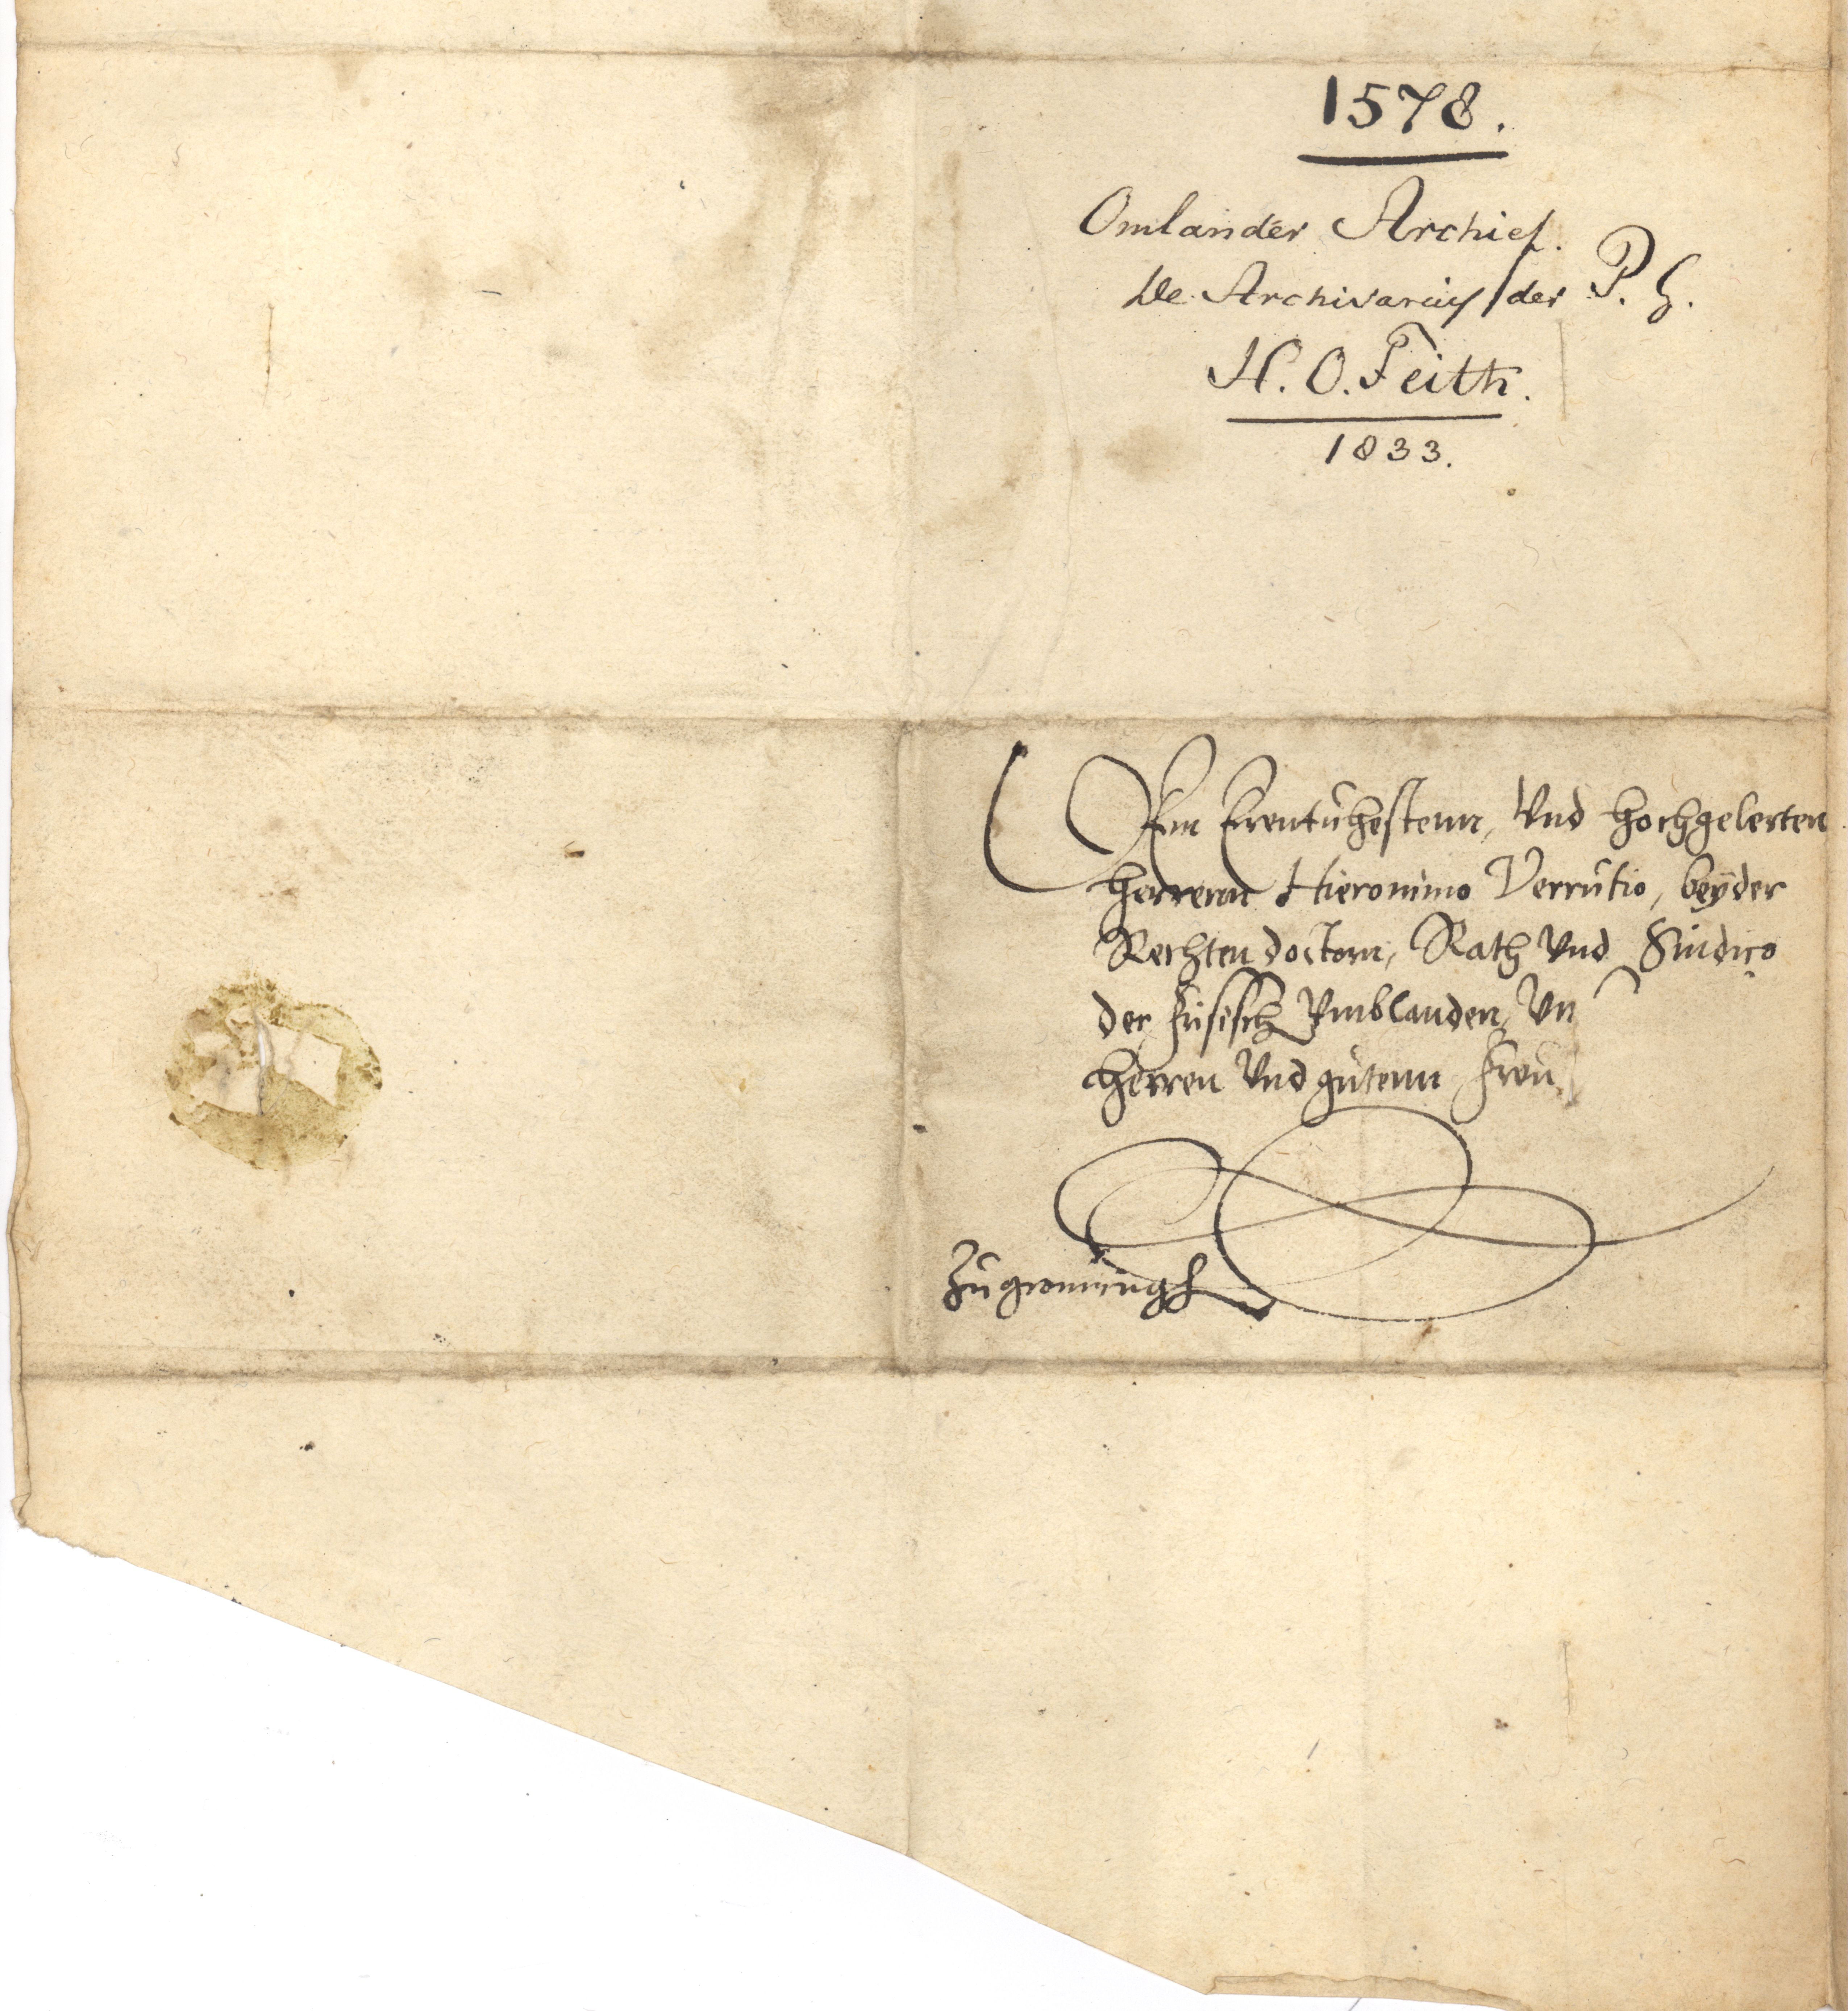 1578.
Omlander Archief.
De Archivarius der P. G.
H. O. Feith.
1833.
Dem Erentuhestenn, Vnd hochgelerten
herrenn Hieronimo Verrutio, beÿder
Rechten doctorn, Rath Vnd Sindico
der frisisch Vmblanden, Vn
herren Vnd gutenn freu
Zu groningh